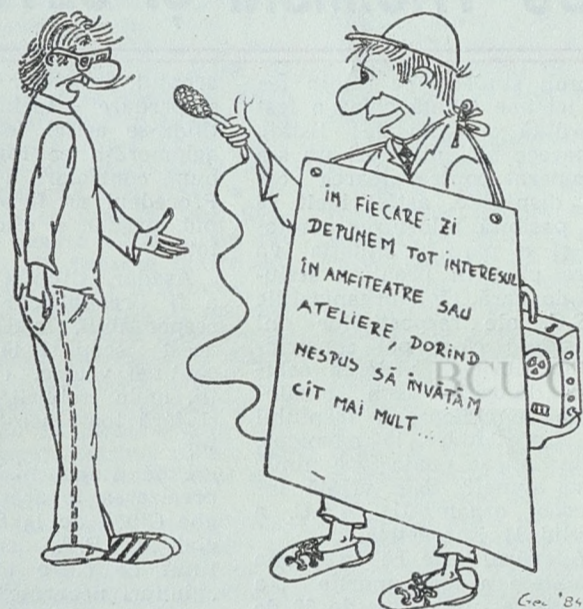 ÎN FIECARE ZI
DEPUNEM TOT INTERESUL
ÎN AMFITEATRE SAU
ATELIERE, DORIND
NESPUS SĂ ÎNVĂȚĂM
CÎT MAI MULT....
BCU C
'84